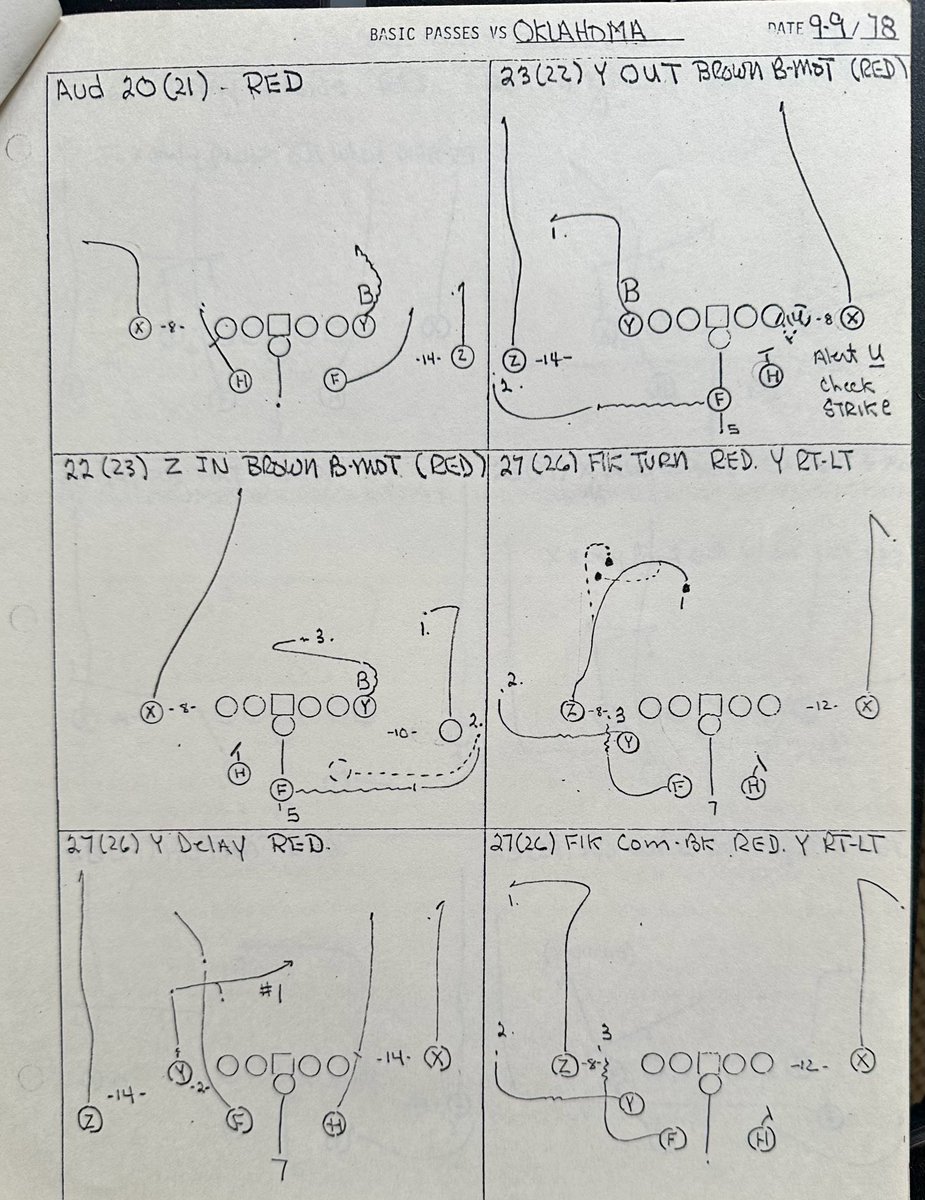 BASIC PASSES VS OKLAHOMA DATE 9-9/78
Aud 20(21) - RED
B
X -8- Y
-14- Z
H F
23(22) Y OUT BROWN B-MOT (RED)
1.
B
Y U -8 X
Z -14-
H Alert U
Check
STRIKE
2.
F
5
22(23) Z IN BROWN B-MOT (RED)
1.
3.
B
X -8- Y
-10- 2.
H
F
5
27(26) FlK TURN RED. Y RT-LT
1
2.
Z -8- 3 -12- X
Y
F H
7
27(26) Y DelAY RED.
#1
Y -2- -14- X
Z -14- F H
7
27(26) FlK Com-BK RED. Y RT-LT
1.
2. 3
Z -8- -12- X
Y
F H